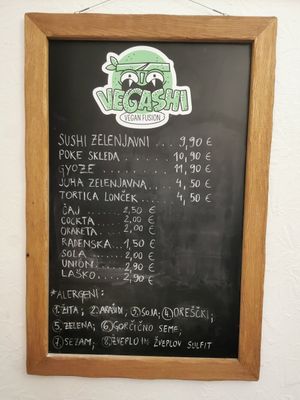 VEGASHI
VEGAN FUSION
SUSHI ZELENJAVNI ... 9,90 €
POKE SKLEDA .... 10,90 €
GYOZE ....... 11,90 €
JUHA ZELENJAVNA .... 4,50 €
TORTICA LONČEK .... 4,50 €
ČAJ ...... 2,50 €
COCKTA .... 2,00 €
ORAKETA .... 2,00 €
RADENSKA .... 1,50 €
SOLA ..... 2,00 €
UNION .... 2,90 €
LAŠKO .... 2,90 €
*ALERGENI:
①ŽITA; ②ARAŠIDI; ③SOJA; ④OREŠČKI;
⑤ZELENA; ⑥GORČIČNO SEME;
⑦SEZAM; ⑧ŽVEPLO IN ŽVEPLOV SULFIT